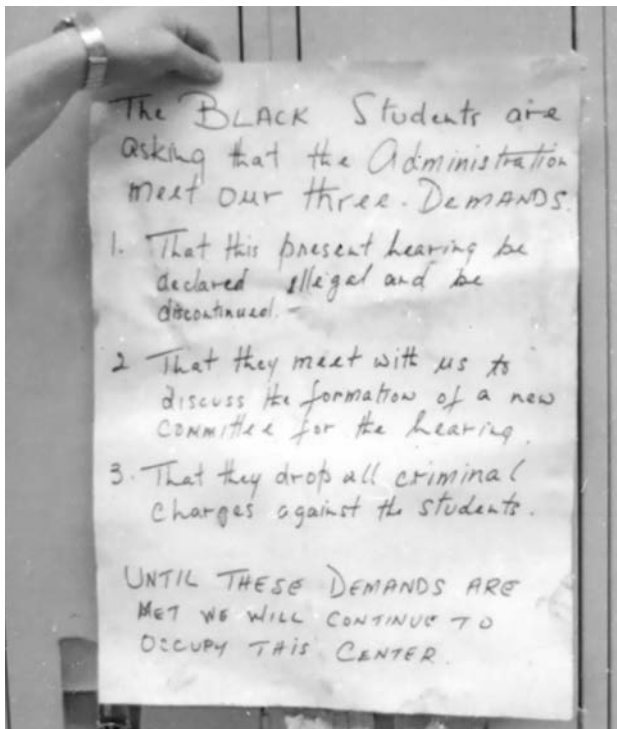 The BLACK Students are
asking that the Administration
meet our three. DEMANDS.
1. That this present hearing be
declared illegal and be
discontinued. -
2 That they meet with us to
discuss the formation of a new
COMMITTEE for the hearing.
3. That they drop all criminal
charges against the students.
UNTIL THESE DEMANDS ARE
MET WE WILL CONTINUE TO
OCCUPY THIS CENTER.